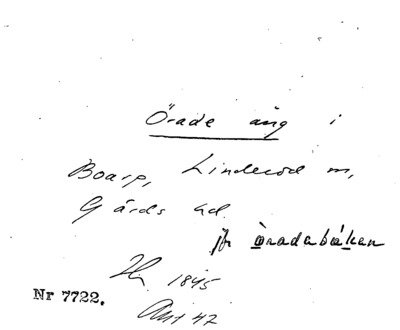 Örade äng i
Boarp, Linderöd sn,
Gärds hd.
jfr öradabäken
Hr. 1845
Nr 7722.
Akt 47